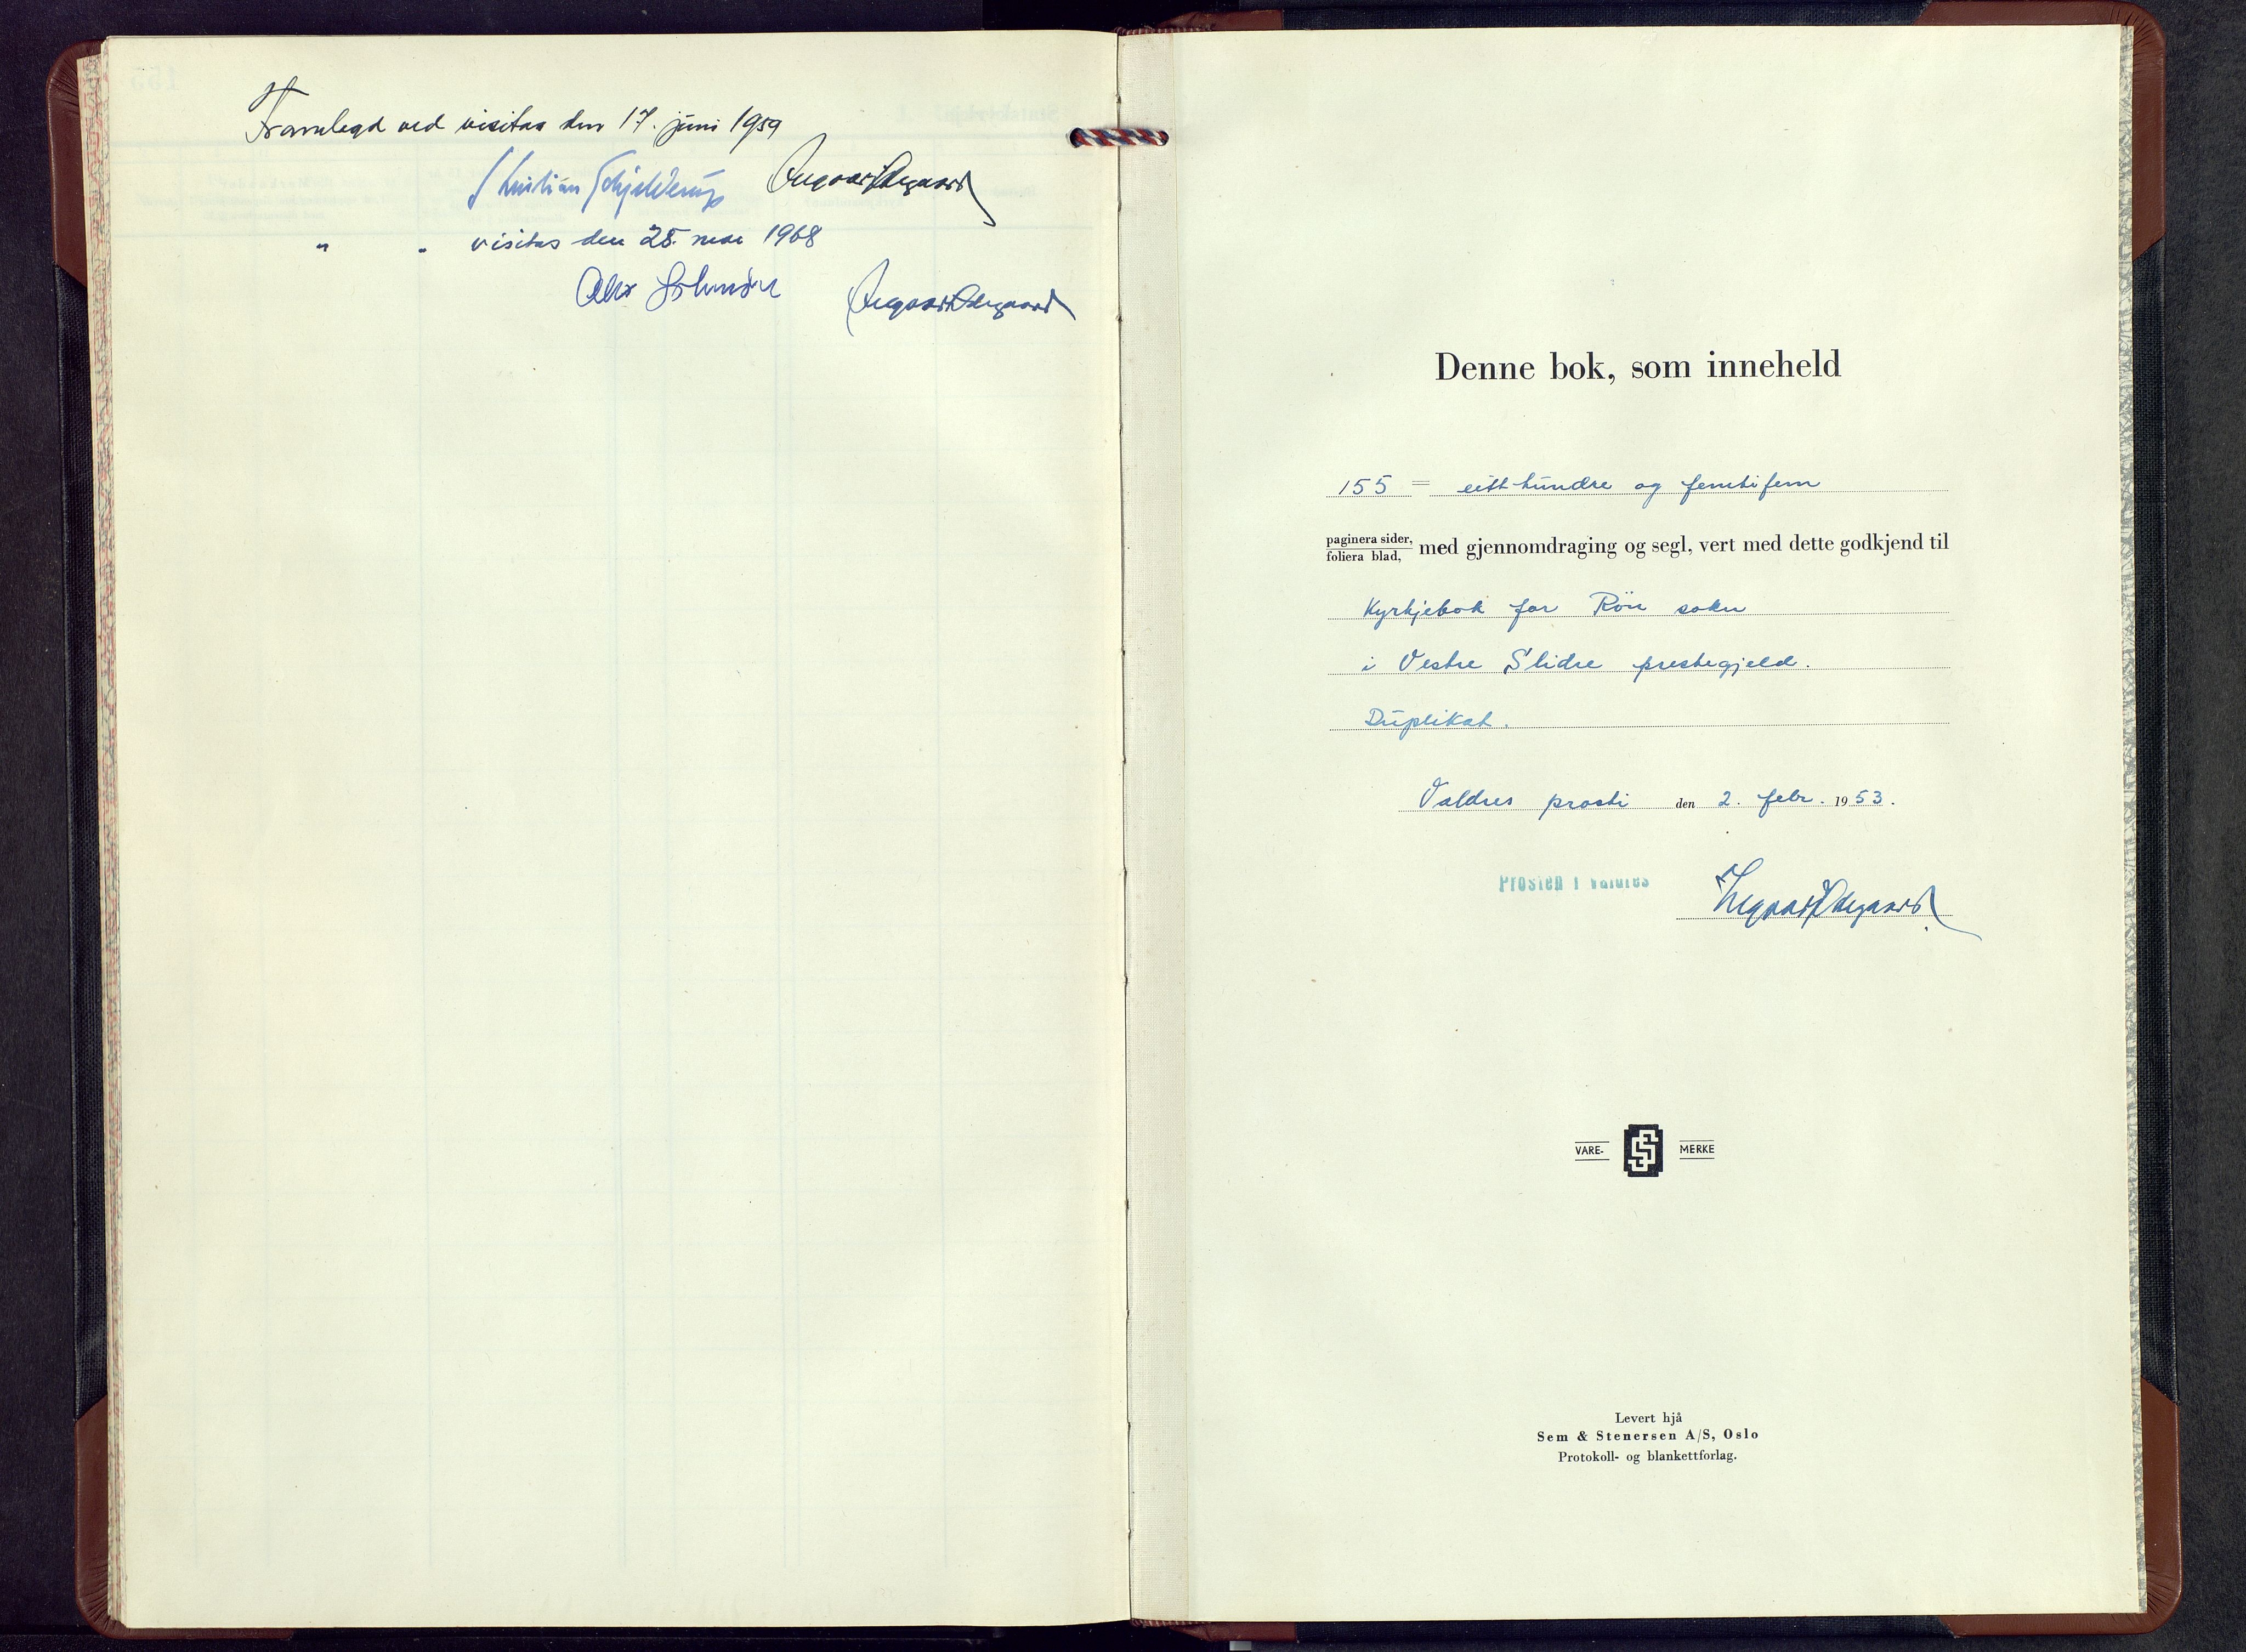 Framlegd ved visitas den 17. juni 1959
Kristian Schjelderup
" " visitas den 28. mai 1968
Alex Johnson
Denne bok, som inneheld
155 = eitt hundre og femtifem
paginera sider,
foliera blad, med gjennomdraging og segl, vert med dette godkjend til
Kyrkjebok for Røn sokn
i Vestre Slidre prestegjeld.
Duplikat.
Valdres prosti den 2. febr. 1953.
Prosten i Valdres
VARE- MERKE
Levert hjå
Sem & Stenersen A/S, Oslo
Protokoll- og blankettforlag.